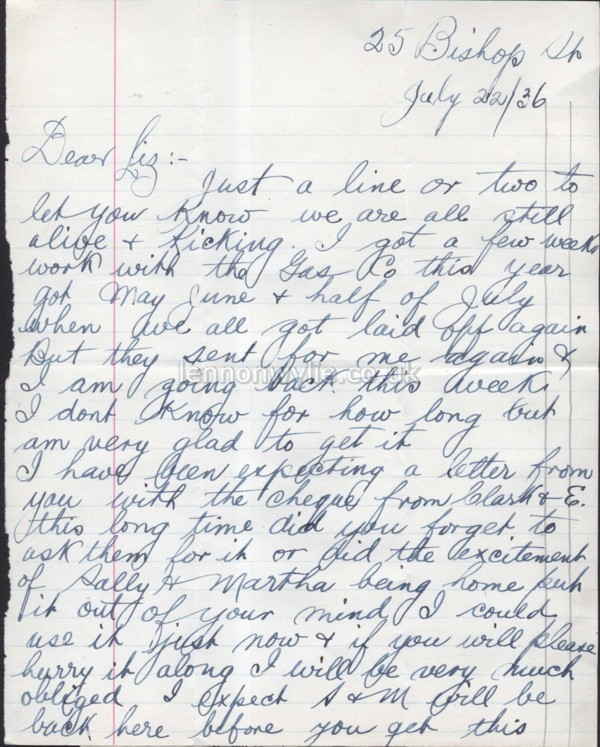 25 Bishop St
July 22/36
Dear Liz:-
Just a line or two to
let you know we are all still
alive + kicking. I got a few weeks
work with the Gas Co this year
got May June + half of July
when we all got laid off again
But they sent for me again &
I am going back this week
I dont know for how long but
am very glad to get it
I have been expecting a letter from
you with the cheque from Clark & E.
this long time did you forget to
ask them for it or did the excitement
of Sally & Martha being home put
it out of your mind I could
use it just now & if you will please
hurry it along I will be very much
obliged I expect S & M will be
back here before you get this
lennonwylie.co.uk